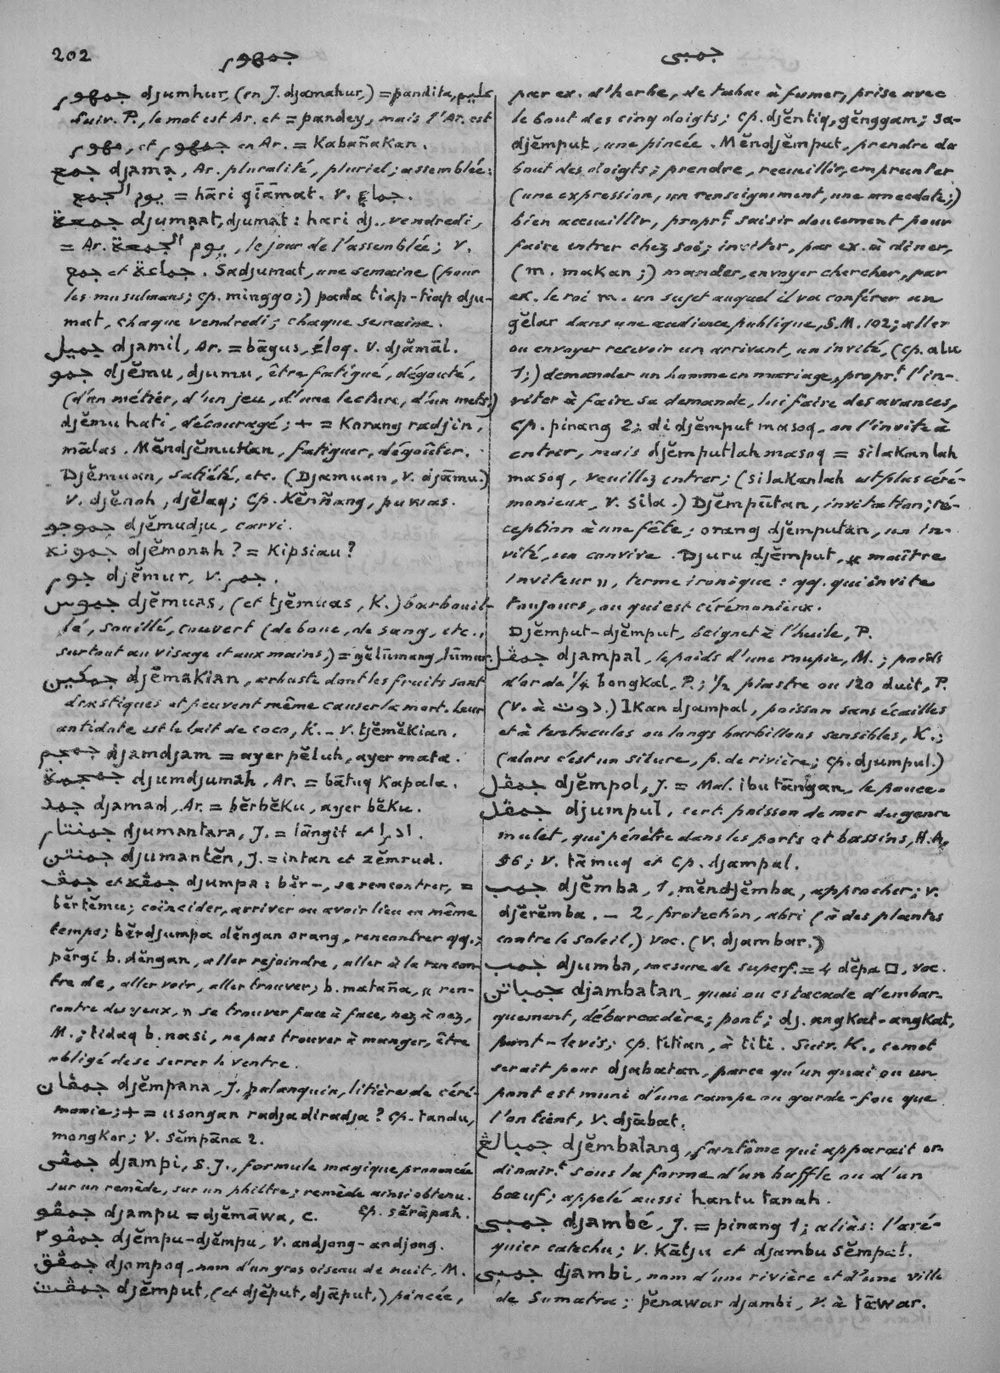 202
جمهور
جمبى
جمهور djumhur, (en J. djamahur,) = pandita, عليم
Suiv. P., le mot est Ar. et = pandey, mais l'Ar. est
جمهور, et جمهور en Ar. = Kabañakan.
جمع djama, Ar. pluralité, pluriel; assemblée:
يوم الجمع = hāri qīāmat. V. جماع.
جمعة djumaat, djumat: hari dj., vendredi,
= Ar. يوم الجمعة, le jour de l'assemblée; V.
جمع et جماعة. Sadjumat, une semaine (pour
les musulmans; cp. minggo;) pada tiap-tiap dju-
mat, chaque vendredi; chaque semaine.
جميل djamil, Ar. = bāgus, éloq. V. djămāl.
جمو djĕmu, djumu, être fatigué, dégouté,
(d'un métier, d'un jeu, d'une lecture, d'un mets;)
djĕmu hati, découragé; + = Korang radjin,
mālas. MĕndjĕmuKan, fatiguer, dégoûter.
Djĕmuan, satiété, etc. (Djamuan, V. djāmu.)
V. djĕnoh, djĕlaq; Cp. Kĕnñang, puwas.
جموجو djĕmudju, carvi.
djĕmonah? = Kipsiau?
جمور djĕmur, V. جمر.
جموس djĕmuas, (et tjĕmuas, K.) barbouil-
lé, souillé, couvert (de boue, de sang, etc.,
surtout au visage et aux mains.) = gĕlūmang, lūmur.
جمكين djĕmakian, arbuste dont les fruits sont
drastiques et peuvent même causer la mort. Leur
antidote est le lait de coco, K. – V. tjĕmĕkian.
جمجم djamdjam = ayer pĕluh, ayer mata.
جمجمة djumdjumah, Ar. = bātuq Kapala.
جمد djamad, Ar. = bĕrbĕKu, ayer bĕKu.
جمنتار djumantara, J. = lāngit et ادرا.
جمنتن djumantĕn, J. = intan et zĕmrud.
جمڤ et جمڤه djumpa: bĕr-, se rencontrer, =
bĕrtĕmu; coïncider, arriver ou avoir lieu en même
temps; bĕrdjumpa dĕngan orang, rencontrer qq.;
pĕrgi b. dĕngan, aller rejoindre, aller à la rencon-
tre de, aller voir, aller trouver; b. mataña, « ren-
contre des yeux, » se trouver face à face, nez à nez,
M.; tidaq b. nasi, ne pas trouver à manger, être
obligé de se serrer le ventre.
جمڤان djĕmpana, J. palanquin, litière de céré-
monie; + = usongan radja diradja? Cp. tandu,
mongKor; V. sĕmpāna 2.
جمڤى djampi, S. J., formule magique prononcée
sur un remède, sur un philtre; remède ainsi obtenu.
Cp. sĕrāpah.
جمڤو djampu = djĕmāwa, C.
جمڤو٢ djĕmpu-djĕmpu, V. andjong-andjong.
جمڤق djompoq, nom d'un gros oiseau de nuit, M.
جمڤت djĕmput, (et djĕput, djāput,) pincée,
par ex. d'herbe, de tabac à fumer, prise avec
le bout des cinq doigts; cp. djĕntiq, gĕnggam; sa-
djĕmput, une pincée. Mĕndjĕmput, prendre du
bout des doigts; prendre, recueillir, emprunter
(une expression, un renseignement, une anecdote;)
bien accueillir, propr.t saisir doucement pour
faire entrer chez soi; inviter, par ex. à dîner,
(m. makan;) mander, envoyer chercher, par
ex. le roi m. un sujet auquel il va conférer un
gĕlar dans une audience publique, S.M. 102; aller
ou envoyer recevoir un arrivant, un invité, (cp. alu
1;) demander un homme en mariage, propr.t l'in-
viter à faire sa demande, lui faire des avances,
Cp. pinang 2; di djĕmput masoq, on l'invite à
entrer, mais djĕmputlah masoq = silaKanlah
masoq, veuillez entrer; (silaKanlah est plus céré-
monieux, V. sila.) Djĕmpūtan, invitation; ré-
ception à une fête; orang djĕmputan, un in-
vité, un convive. Djuru djĕmput, « maître
inviteur », terme ironique: qq. qui invite
toujours, ou qui est cérémonieux.
Djĕmput-djĕmput, beignet à l'huile, P.
جمڤل djampal, le poids d'une roupie, M.; poids
d'or de ¼ bongKal, P.; ½ piastre ou 120 duit, P.
(V. à دوت.) IKan djampal, poisson sans écailles
et à tentacules ou longs barbillons sensibles, K.;
(alors c'est un silure, p. de rivière; cp. djumpul.)
جمڤل djĕmpol, J. = Mal. ibu tāngan, le pouce.
جمڤل djumpul, cert. poisson de mer du genre
mulet, qui pénètre dans les ports et bassins, H.A.
96; V. tāmuq et cp. djampal.
جمب djĕmba, 1, mĕndjĕmba, approcher; V.
djĕrĕmba. – 2, protection, abri (à des plantes
contre le soleil.) Voc. (V. djambar.)
جمب djumba, mesure de superf. = 4 dĕpa □, Voc.
جمباتن djambatan, quai ou estacade d'embar-
quement, débarcadère; pont; dj. angKat-angKat,
pont-levis; cp. titian, à titi. Suiv. K., ce mot
serait pour djabatan, parce qu'un quai ou un
pont est muni d'une rampe ou garde-fou que
l'on tient, V. djābat.
جمبالڠ djĕmbalang, fantôme qui apparait or-
dinair.t sous la forme d'un buffle ou d'un
bœuf; appelé aussi hantu tanah.
جمبى djambé, J. = pinang 1; aliàs: l'aré-
quier catechu; V. Kātju et djambu sĕmpal.
جمبى djambi, nom d'une rivière et d'une ville
de Sumatra; pĕnawar djambi, V. à tāwar.